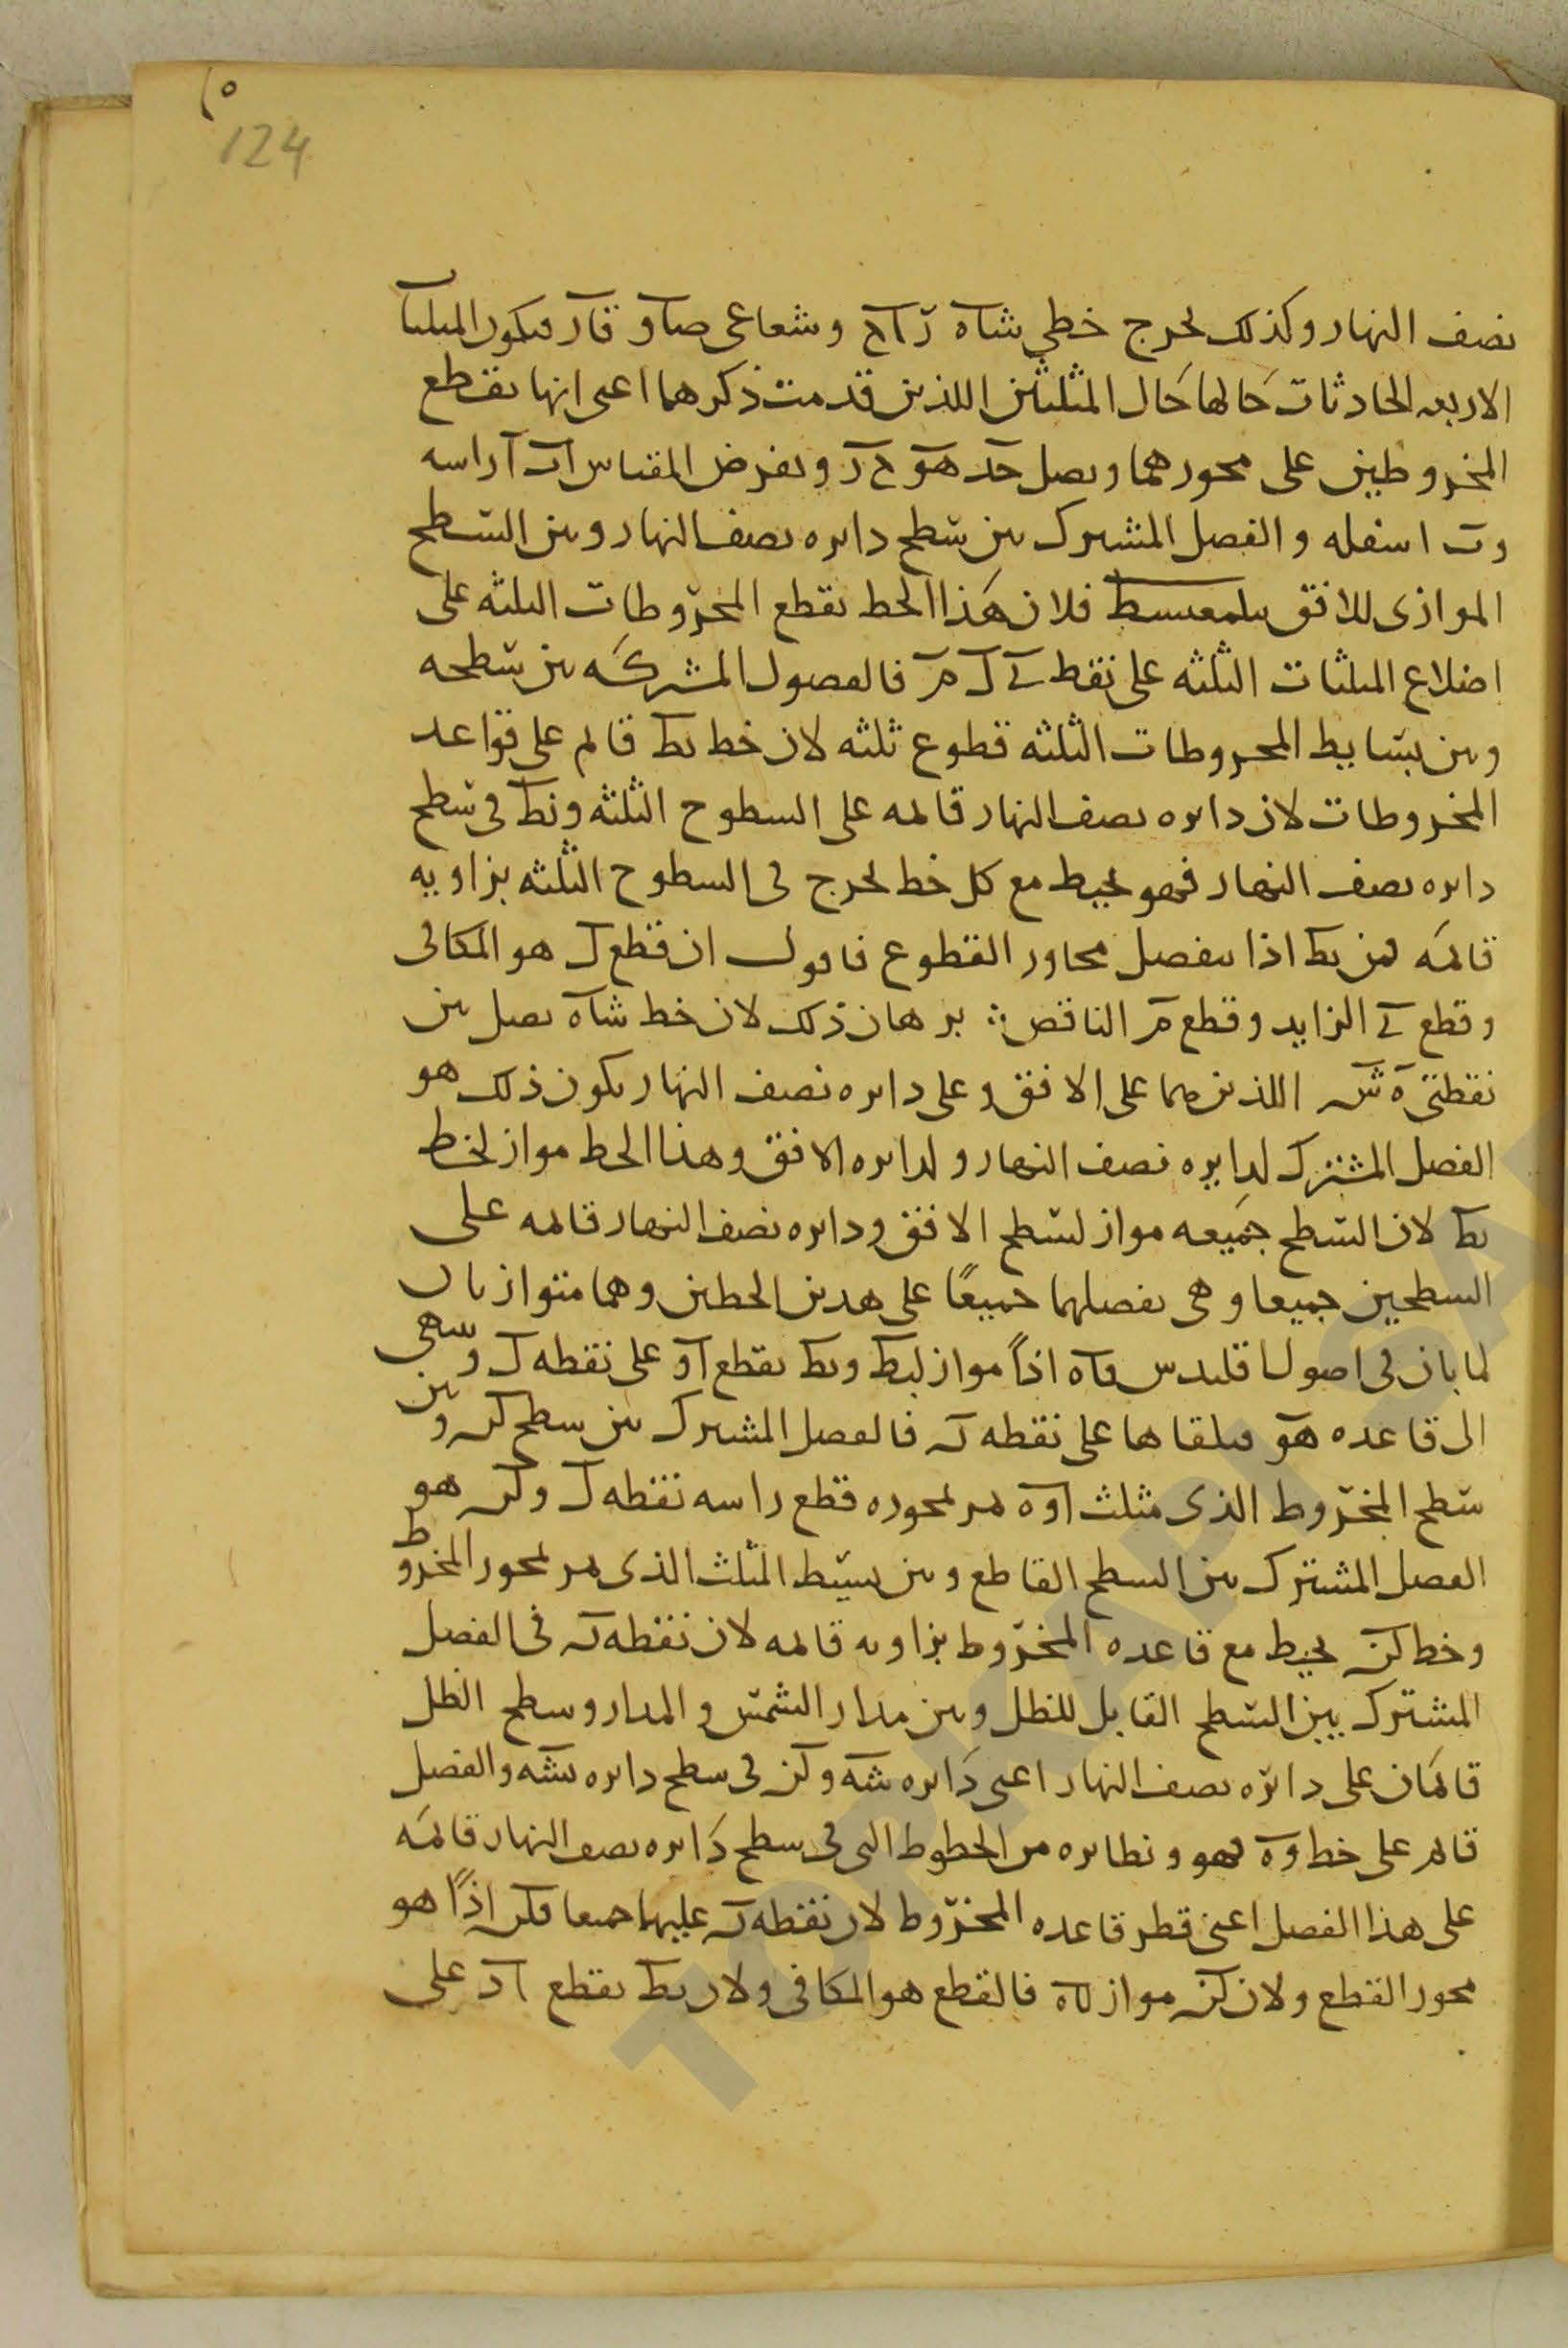 ١٥
124
نصف النهار وكذلك نخرج خطي شاه راح وشعاعي صاو قار فيكون المثلثات
الاربعه الحادثات حالها حال المثلثين اللذين قدمت ذكرهما اعنى انها تقطع
المخروطين على محورهما ونصل حد هو ح ر ونفرض المقياس اب ا راسه
وب اسفله والفصل المشترك بين سطح دايره نصف النهار وبين السطح
الموازى للافق فلان هذا الخط يقطع المخروطات الثلثه على
اضلاع المثلثات الثلثه على نقط ى ل م فالفصول المشتركه بين سطحه
وبين بسايط المخروطات الثلثه قطوع ثلثه لان خط بط قائم على قواعد
المخروطات لان دايره نصف النهار قائمه على السطوح الثلثه وبط في سطح
دايره نصف النهار فهو يحيط مع كل خط يخرج في السطوح الثلثه بزاويه
قائمه فمن بط اذا ينفصل محاور القطوع فاقول ان قطع ل هو المكافى
وقطع ى الزايد وقطع م الناقص ∴ برهان ذلك لان خط شاه يصل بين
نقطتى ه ش اللذين هما على الافق وعلى دايره نصف النهار يكون ذلك هو
الفصل المشترك لدايره نصف النهار ولدايره الافق وهذا الخط مواز لخط
بط لان السطح جميعه مواز لسطح الافق ودايره نصف النهار قائمه على
السطحين جميعا وهى تفصلهما جميعًا على هذين الخطين وهما متوازيان
لما بان في اصول اقليدس فاه اذاً مواز لبط وبط يقطع او على نقطه ل وينتهى
الى قاعده هو فيلقاها على نقطه ن فالفصل المشترك بين سطح لن وبين
سطح المخروط الذى مثلث اوه يمر بمحوره قطع راسه نقطه ل ولن هو
الفصل المشترك بين السطح القاطع وبين بسيط المثلث الذى يمر بمحور المخروط
وخط لن يحيط مع قاعده المخروط بزاويه قائمه لان نقطه ن في الفصل
المشترك بين السطح القابل للظل وبين مدار الشمس والمدار وسطح الظل
قائمان على دايره نصف النهار اعنى دايره شه ولن في سطح دايره شه والفصل
قائم على خط وه فهو ونظايره من الخطوط التى في سطح دايره نصف النهار قائمه
على هذا الفصل اعنى قطر قاعده المخروط لان نقطه ن عليهما جميعا فلن اذاً هو
محور القطع ولان لن مواز لاه فالقطع هو المكافى ولان بط يقطع اد على